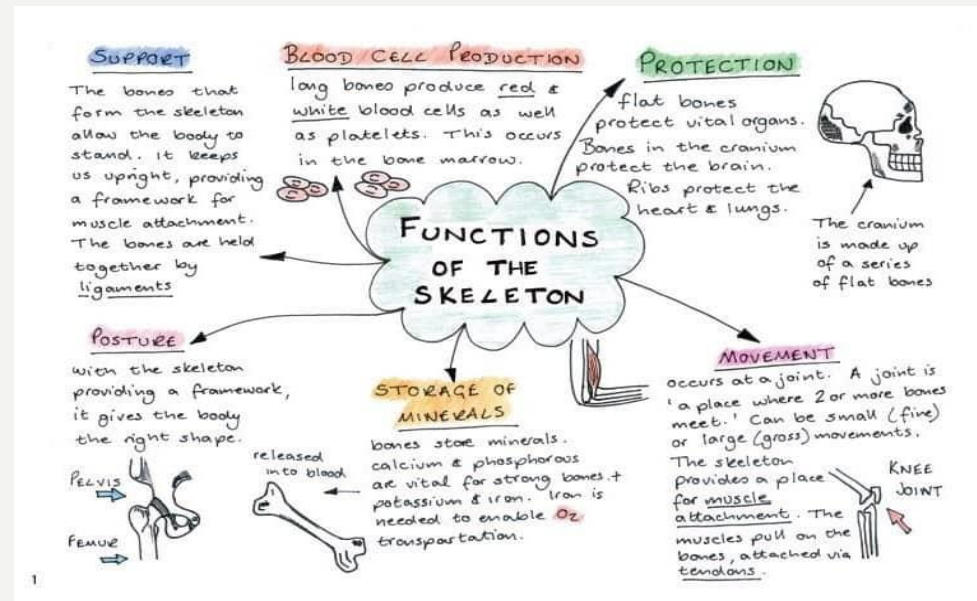 SUPPORT
The bones that
form the skeleton
allow the body to
stand. it keeps
us upright, providing
a framework for
muscle attachment.
The bones are held
together by
ligaments
BLOOD CELL PRODUCTION
long bones produce red &
white blood cells as well
as platelets. This occurs
in the bone marrow.
PROTECTION
flat bones
protect vital organs.
Bones in the cranium
protect the brain.
Ribs protect the
heart & lungs.
The cranium
is made up
of a series
of flat bones
FUNCTIONS
OF THE
SKELETON
POSTURE
with the skeleton
providing a framework,
it gives the body
the right shape.
PELVIS
FEMUR
STORAGE OF
MINERALS
bones store minerals.
calcium & phosphorous
are vital for strong bones +
potassium & iron. Iron is
needed to enable O2
transportation.
released
into blood
MOVEMENT
occurs at a joint. A joint is
'a place where 2 or more bones
meet.' Can be small (fine)
or large (gross) movements.
The skeleton
provides a place
for muscle
attachment. The
muscles pull on the
bones, attached via
tendons.
KNEE
JOINT
1